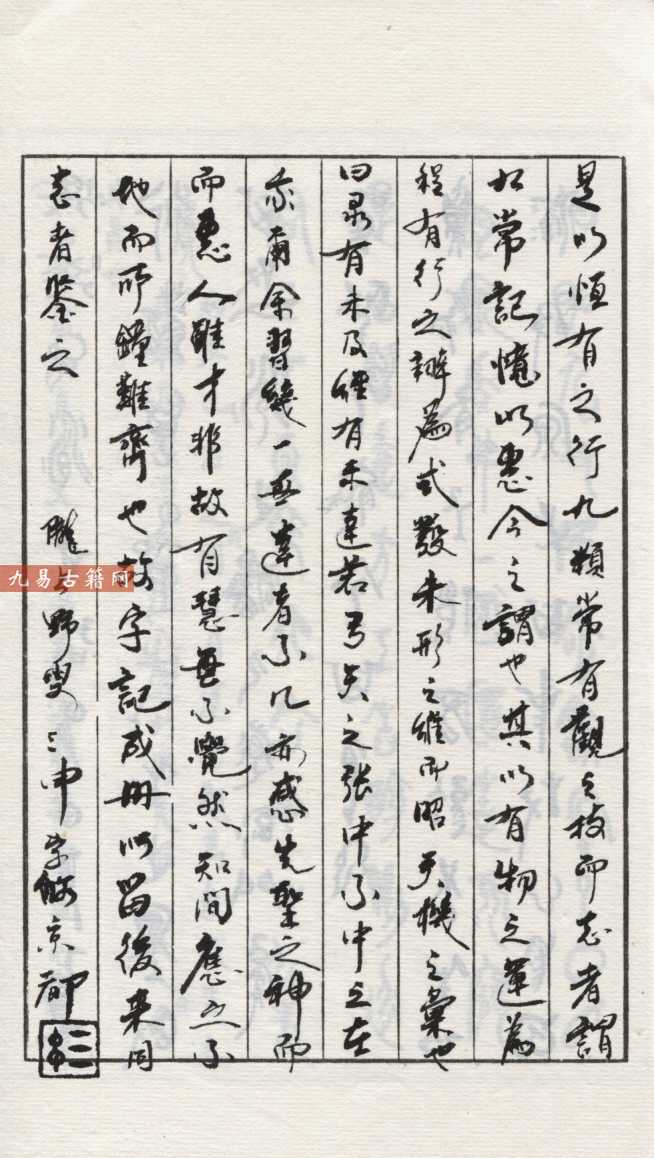 是以恒有之行九類常有觀之枝而志者謂
如常記憶以惠今之謂也其以有物之運為
程有行之辦為式發未形之維而昭天機之彙也
曰录有未及經有未達若弓矢之张中不中之在
余習幾一無達者不凡亦感先聖之神而
而惠人雖才非故有慧無不覺然知間應之不
地而所鐘難齊也故字記成册以留後来同
志者鑒之
野叟三申字於京都
九易古籍网